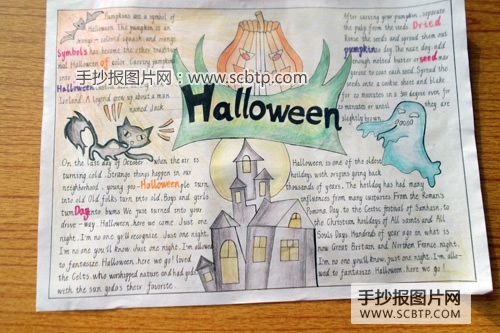 Pumpkins are a symbol of
Halloween. The pumpkin is an
orange-colored squash, and orange
Symbols has become the other tradition
nal Halloween of color. Carving pumpkins
Halloween
Ireland. A legend grew up about a man
named Jack
After carving your pumpkin, separate
the pulp from the seeds. Dried
Rinse the seeds and spread them out
pumpkin to dry. The next day, add
enough melted butter or seed mar
garine to coat each seed. Spread the
seeds onto a cookie sheet and bake
for 20 minutes in a 300 degree oven for
minutes or until they are
slightly brown.
手抄报图片网：www.scbtp.com
Halloween
On the last day of October when the air is
turning cold. Strange things happen in our
neighborhood. young peo-Halloween ple turn
into old Old folks turn into old. Boys and girls
turn Day into bums We just turned into your
drive-way. Halloween, here we come Just one
night. I'm no one you'll recognize. Just one night.
I'm no one you'll know. Just one night. I'm allowed
to fantasize. Halloween, here we go! loved
the Celts, who worshipped nature and had gods
with the sun gods's their favorite
Halloween is one of the oldest
holidays with origins going back
thousands of years. The holiday has had many
influences from many cultures From the Roman's
Pomona Day, to the Celtic festival of Samhain, to
the Christian holidays of All saints and All
Souls Days. Hundreds of year ago in what is
now Great Britain and Northern France. night.
I'm no one you'll know, just one night, I'm allo-
wed to fantasize. Halloween, here we go!
手抄报图片网
WWW.SCBTP.COM